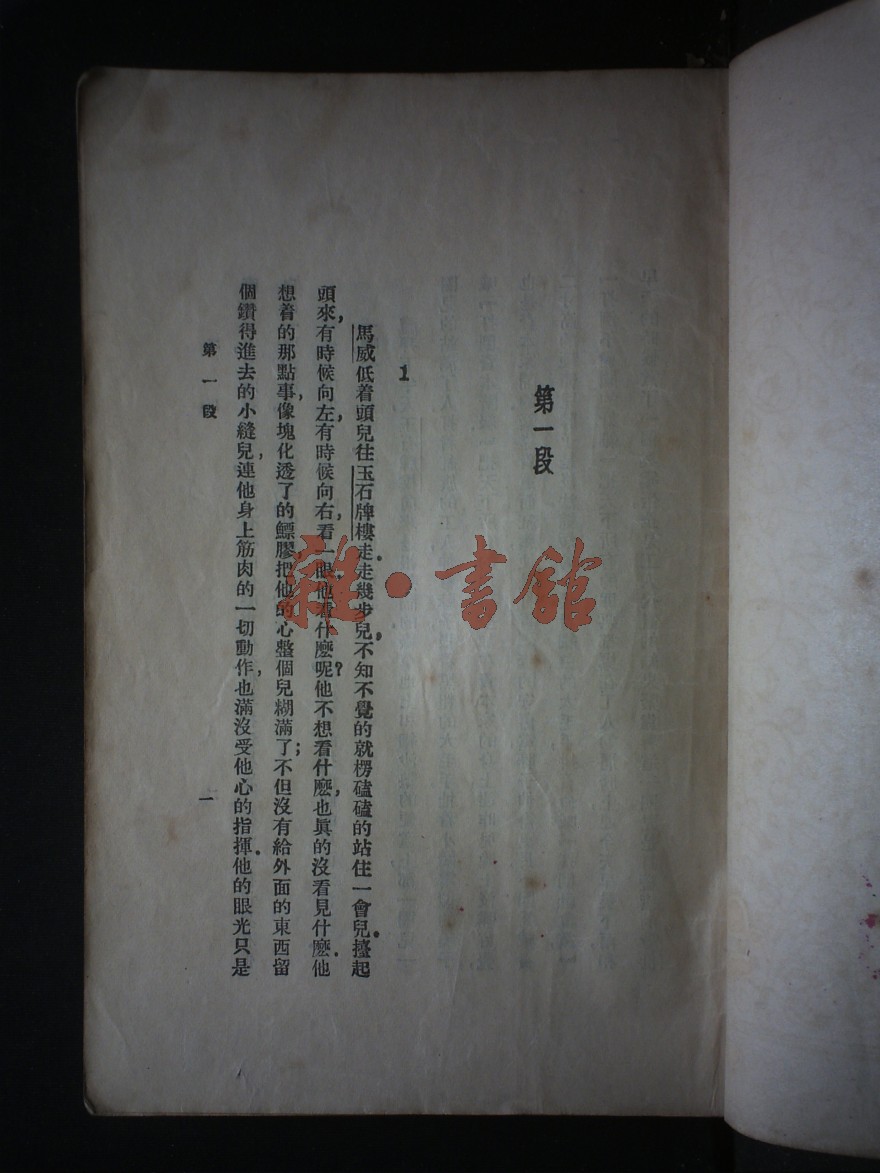 第一段
1
馬威低着頭兒往玉石牌樓走.走幾步兒,不知不覺的就楞磕磕的站住一會兒.擡起
頭來,有時候向左,有時候向右看一眼.他看什麽呢?他不想看什麽,也眞的沒看見什麽.他
想着的那點事,像塊化透了的鰾膠,把他的心整個兒糊滿了;不但沒有給外面的東西留
個鑽得進去的小縫兒,連他身上筋肉的一切動作,也滿沒受他心的指揮.他的眼光只是
第一段
一
雜·書館